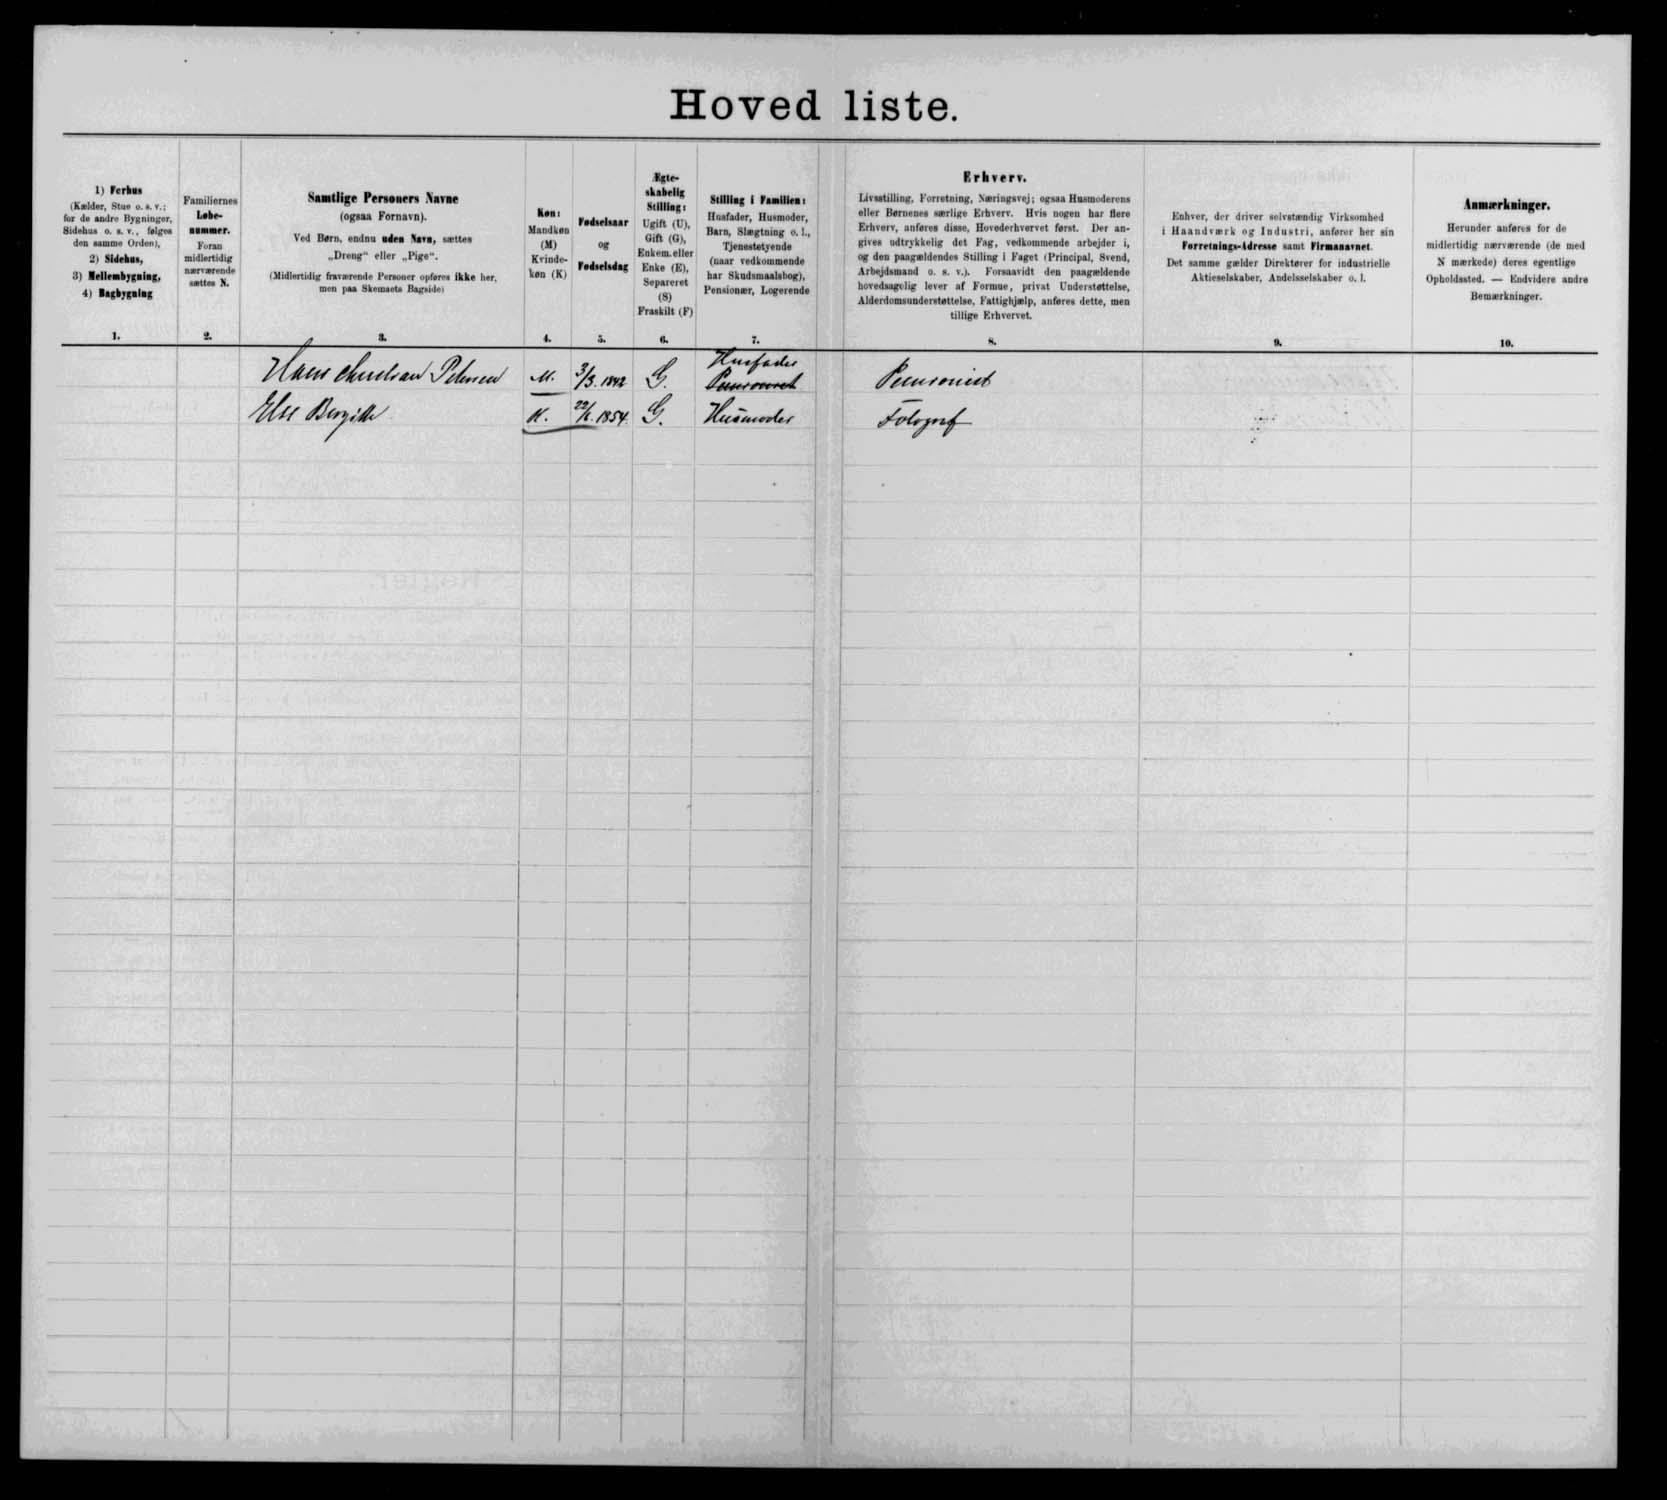 Hoved liste.
1) Forhus
(Kælder, Stue o. s. v.;
for de andre Bygninger,
Sidehus o. s. v., følges
den samme Orden),
2) Sidehus,
3) Mellembygning,
4) Bagbygning
1.
Familiernes
Løbe-
nummer.
Foran
midlertidig
nærværende
sættes N.
2.
Samtlige Personers Navne
(ogsaa Fornavn).
Ved Børn, endnu uden Navn, sættes
„Dreng“ eller „Pige“.
(Midlertidig fraværende Personer opføres ikke her,
men paa Skemaets Bagside)
3.
Køn:
Mandkøn
(M)
Kvinde-
køn (K)
4.
Fødselsaar
og
Fødselsdag
5.
Ægte-
skabelig
Stilling:
Ugift (U),
Gift (G),
Enkem. eller
Enke (E),
Separeret
(S)
Fraskilt (F)
6.
Stilling i Familien:
Husfader, Husmoder,
Barn, Slægtning o. l.,
Tjenestetyende
(naar vedkommende
har Skudsmaalsbog),
Pensionær, Logerende
7.
Erhverv.
Livsstilling, Forretning, Næringsvej; ogsaa Husmoderens
eller Børnenes særlige Erhverv. Hvis nogen har flere
Erhverv, anføres disse, Hovederhvervet først. Der an-
gives udtrykkelig det Fag, vedkommende arbejder i,
og den paagældendes Stilling i Faget (Principal, Svend,
Arbejdsmand o. s. v.). Forsaavidt den paagældende
hovedsagelig lever af Formue, privat Understøttelse,
Alderdomsunderstøttelse, Fattighjælp, anføres dette, men
tillige Erhvervet.
8.
Enhver, der driver selvstændig Virksomhed
i Haandværk og Industri, anfører her sin
Forretnings-Adresse samt Firmanavnet.
Det samme gælder Direktører for industrielle
Aktieselskaber, Andelsselskaber o. l.
9.
Anmærkninger.
Herunder anføres for de
midlertidig nærværende (de med
N mærkede) deres egentlige
Opholdssted. — Endvidere andre
Bemærkninger.
10.
Husfader
Hans Christian Petersen M. 3/3. 1842 G. Pensionist Pensionist
Else Birgitte K. 1854. G. Husmoder Fotograf